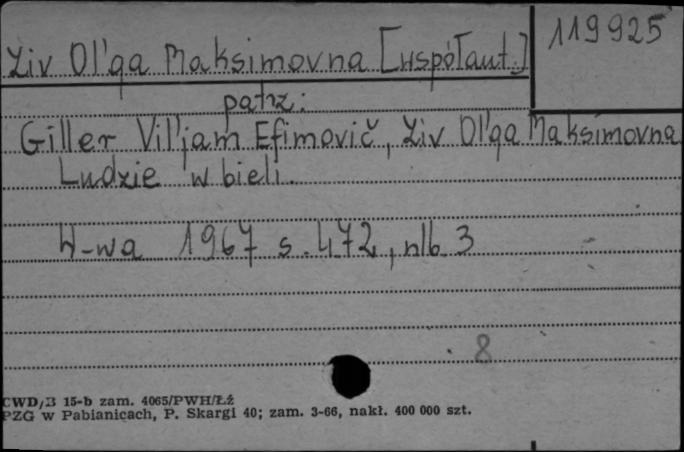 Ziv Ol'ga Maksimovna [współaut.]
119925
patrz:
Giller Vil'jam Efimovič, Ziv Ol'ga Maksimovna
Ludzie w bieli.
W-wa 1967 s. 472, nlb. 3
8
CWD/B 15-b zam. 4065/PWH/Łź
PZG w Pabianicach, P. Skargi 40; zam. 3-66, nakł. 400 000 szt.